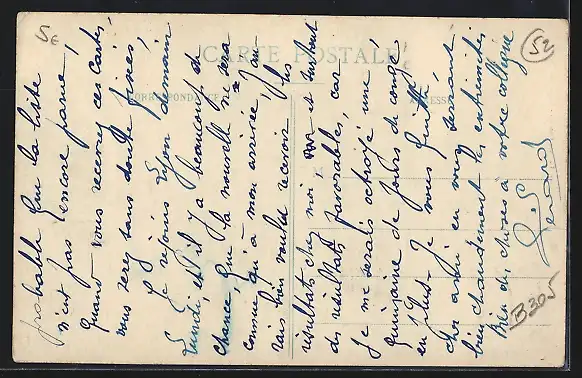 5e
52
CARTE POSTALE
CORRESPONDANCE
ADRESSE
probable que la liste
n'est pas encore parue!
Quand vous recevrez ces cartes,
vous serez sans doute fixés!
Je rejoins Lyon demain
Lundi et il y a beaucoup de
chance que la nouvelle ne sera
connue qu'à mon arrivée! J'au-
rais bien voulu recevoir les
résultats chez moi et surtout
des résultats favorables, car
je me serais octroyé une
quinzaine de jours de congé
en plus. Je vous quitte,
cher ami en vous serrant
bien chaudement les extrémités
Bien des choses à votre collègue
B305